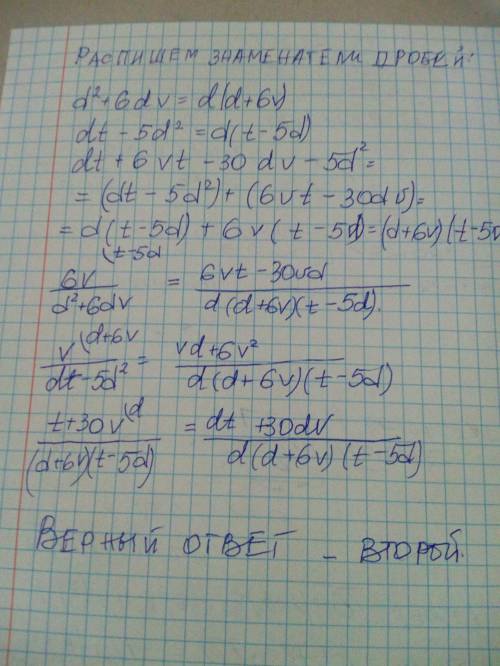 РАСПИШЕМ ЗНАМЕНАТЕЛИ ДРОБЕЙ:
d²+6dv = d(d+6v)
dt - 5d² = d(t-5d)
dt + 6vt - 30dv - 5d² =
= (dt - 5d²) + (6vt - 30dv) =
= d(t-5d) + 6v(t-5d) = (d+6v)(t-5d
6v (t-5d / d²+6dv = 6vt - 30vd / d(d+6v)(t-5d).
v (d+6v / dt-5d² = vd+6v² / d(d+6v)(t-5d)
t+30v (d / (d+6v)(t-5d) = dt +30dv / d(d+6v)(t-5d)
ВЕРНЫЙ ОТВЕТ – ВТОРОЙ.